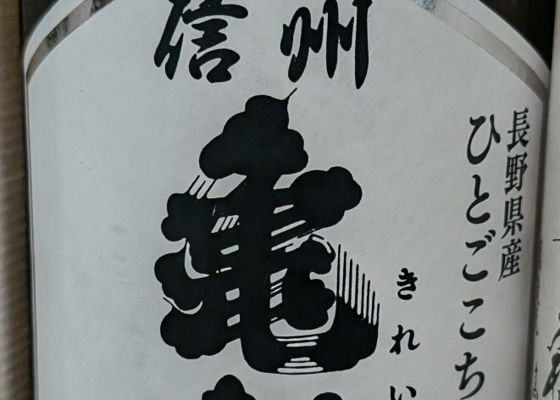 信州
亀
長野県産
ひとごこち
きれい